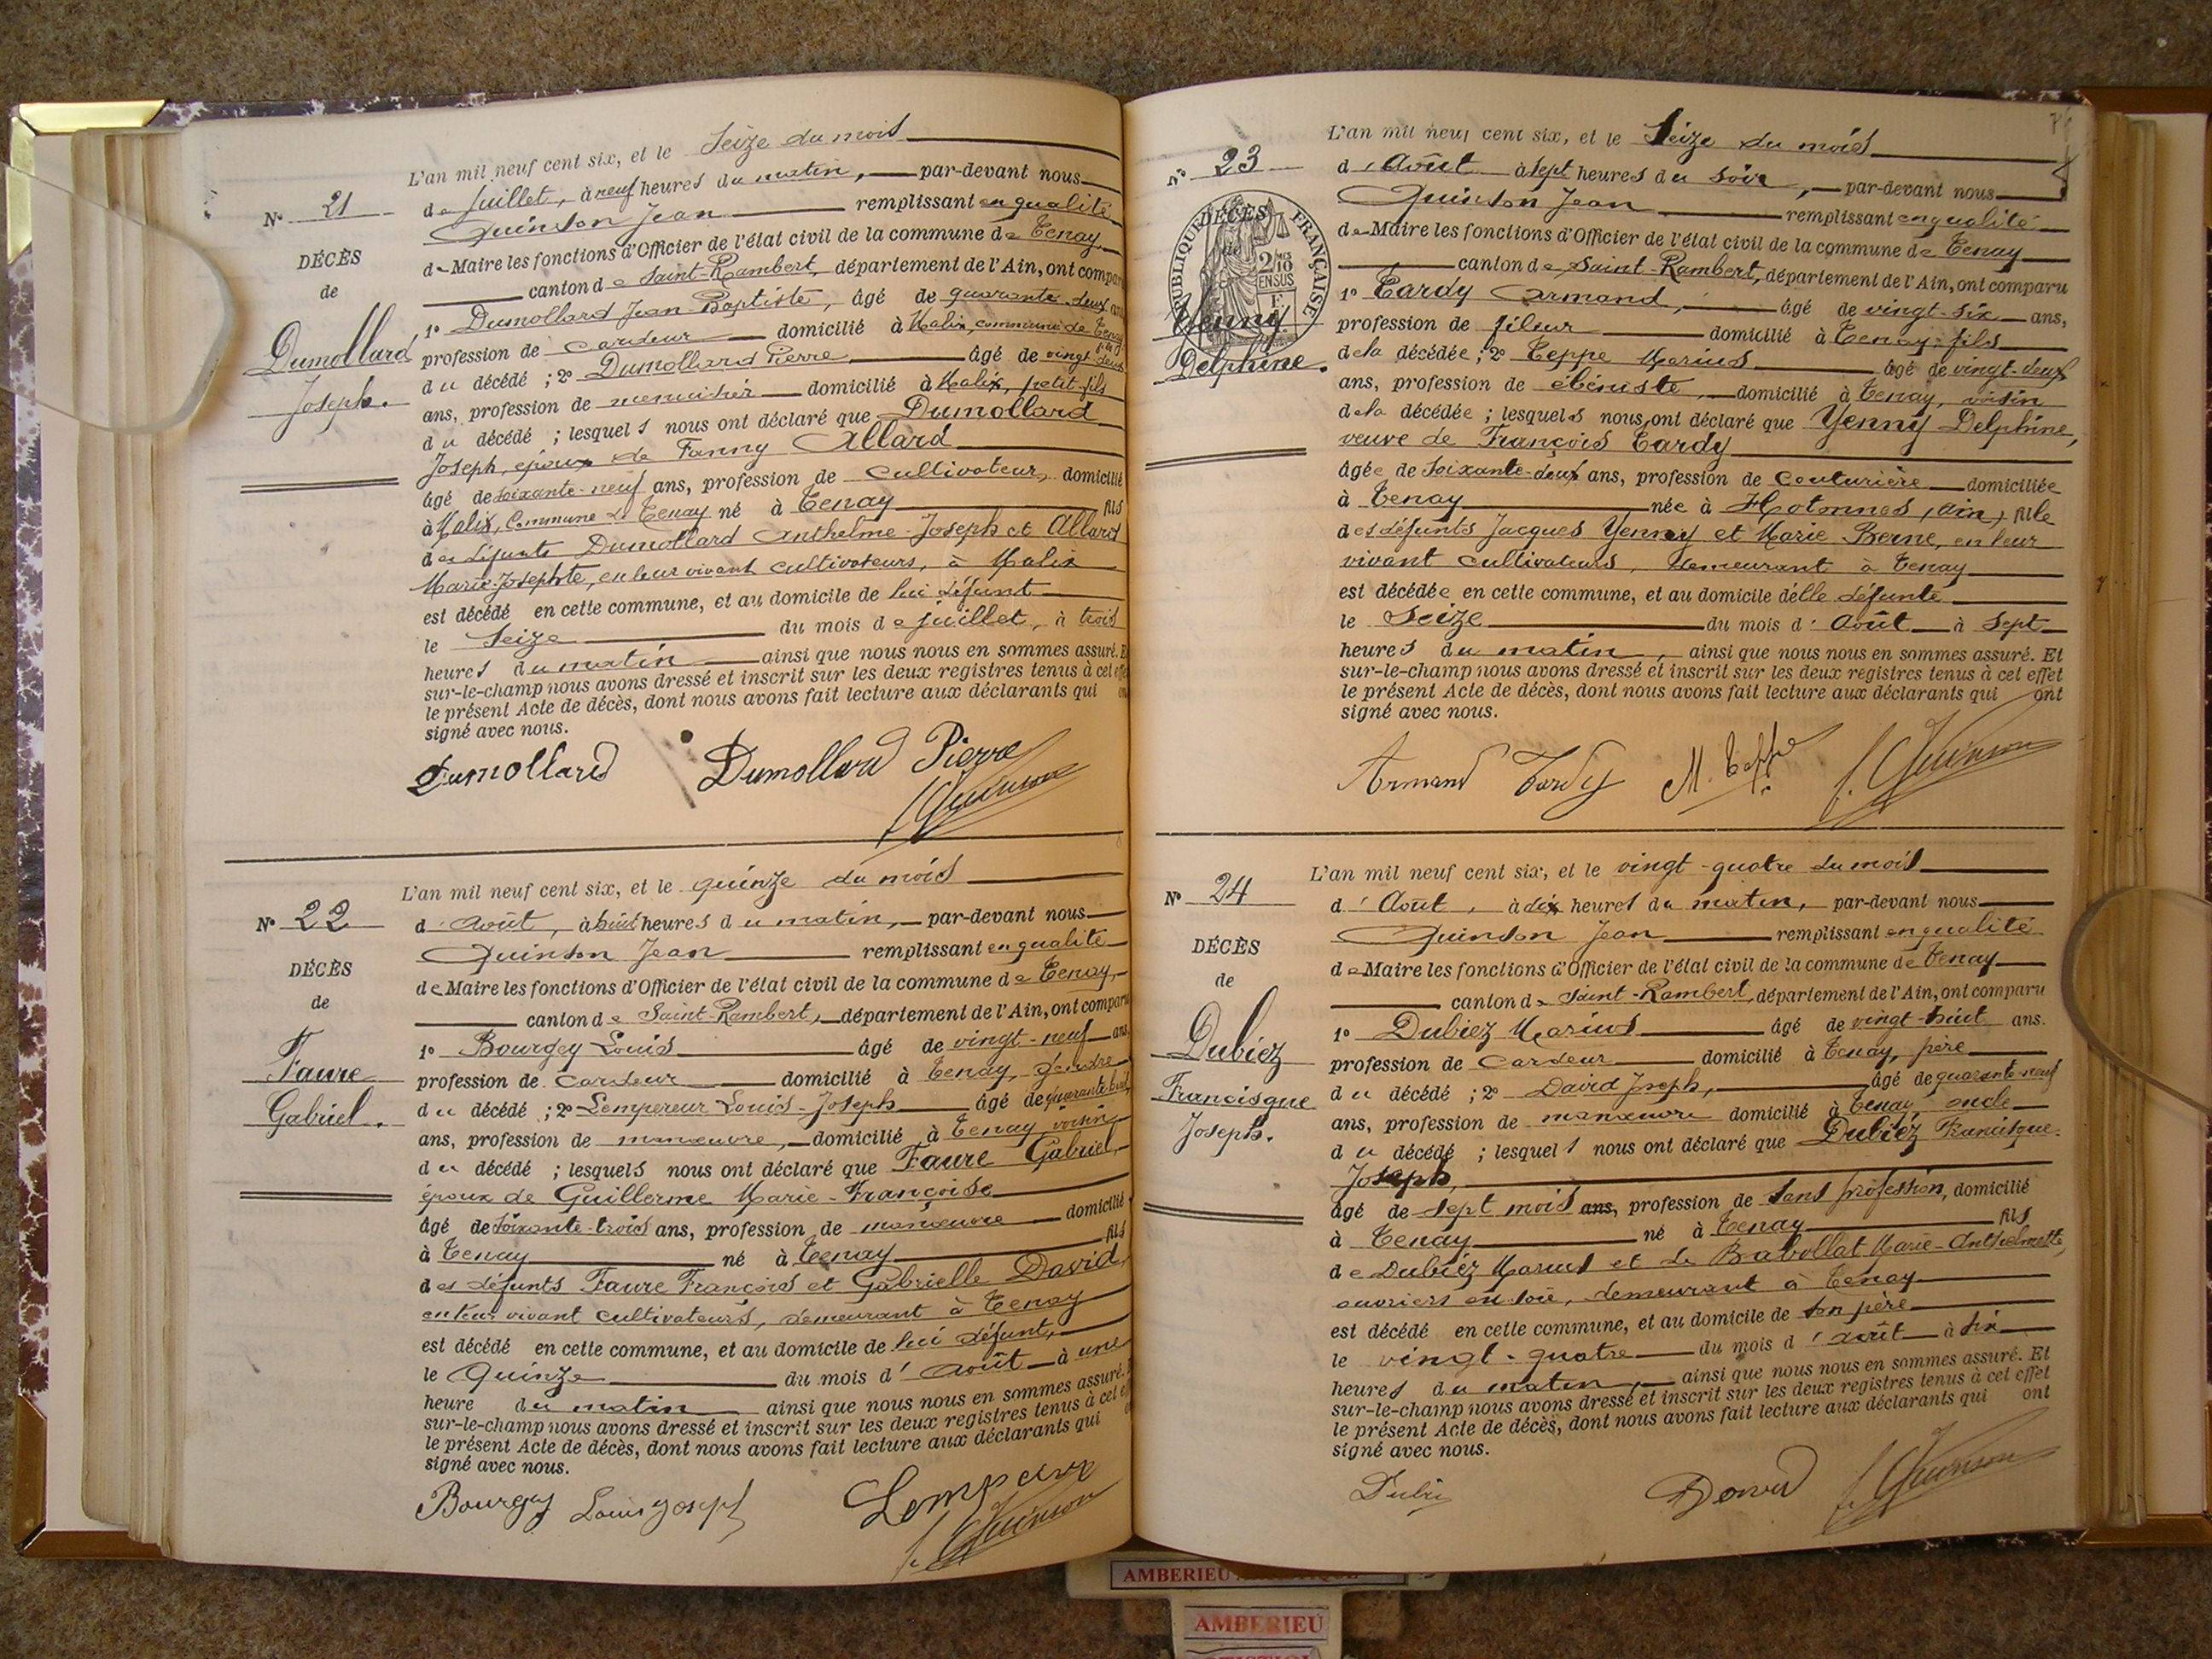 L'an mil neuf cent six, et le Seize du mois
N° 21
de Juillet, à neuf heures du matin, par-devant nous
Quinson Jean remplissant en qualité
DÉCÈS
de Maire les fonctions d'Officier de l'état civil de la commune de Tenay
de
canton de Saint-Rambert, département de l'Ain, ont comparu
Dumollard
Joseph.
1° Dumollard Jean-Baptiste, âgé de quarante-deux ans
profession de cardeur domicilié à Malix, commune de Tenay, fils
du décédé ; 2° Dumollard Pierre âgé de vingt-deux
ans, profession de menuisier domicilié à Malix, petit-fils
du décédé ; lesquels nous ont déclaré que Dumollard
Joseph, époux de Fanny Allard
âgé de soixante-neuf ans, profession de cultivateur, domicilié
à Malix, Commune de Tenay né à Tenay fils
des défunts Dumollard Anthelme-Joseph et Allard
Marie-Josephte, en leur vivant cultivateurs, à Malix
est décédé en cette commune, et au domicile de lui défunt
le Seize du mois de juillet, à trois
heures du matin ainsi que nous nous en sommes assuré. Et
sur-le-champ nous avons dressé et inscrit sur les deux registres tenus à cet effet
le présent Acte de décès, dont nous avons fait lecture aux déclarants qui ont
signé avec nous.
Dumollard Dumollard Pierre
J. Quinson
L'an mil neuf cent six, et le quinze du mois
N° 22
d'Août, à huit heures du matin, par-devant nous
Quinson Jean remplissant en qualité
DÉCÈS
de Maire les fonctions d'Officier de l'état civil de la commune de Tenay,
de
canton de Saint-Rambert, département de l'Ain, ont comparu
Faure
Gabriel.
1° Bourgey Louis âgé de vingt-neuf ans
profession de cardeur domicilié à Tenay, gendre
du décédé ; 2° Lempereur Louis-Joseph âgé de quarante-huit
ans, profession de manœuvre, domicilié à Tenay, voisin
du décédé ; lesquels nous ont déclaré que Faure Gabriel,
époux de Guillerme Marie-Françoise
âgé de soixante-trois ans, profession de manœuvre domicilié
à Tenay né à Tenay fils
des défunts Faure François et Gabrielle David,
en leur vivant cultivateurs, demeurant à Tenay
est décédé en cette commune, et au domicile de lui défunt,
le Quinze du mois d'Août à une
heure du matin ainsi que nous nous en sommes assuré.
sur-le-champ nous avons dressé et inscrit sur les deux registres tenus à cet
le présent Acte de décès, dont nous avons fait lecture aux déclarants qui
signé avec nous.
Bourgey Louis Joseph
J. Quinson
L'an mil neuf cent six, et le Seize du mois
N° 23
d'Août à sept heures du soir, par-devant nous
Quinson Jean remplissant en qualité
RÉPUBLIQUE FRANÇAISE
2/10 EN SUS
DÉCÈS
de
de Maire les fonctions d'Officier de l'état civil de la commune de Tenay
canton de Saint-Rambert, département de l'Ain, ont comparu
Yenny
Delphine.
1° Tardy Armand, âgé de vingt-six ans,
profession de fileur domicilié à Tenay, fils
de la décédée ; 2° Teppe Marius âgé de vingt-deux
ans, profession de ébéniste, domicilié à Tenay, voisin
de la décédée ; lesquels nous ont déclaré que Yenny Delphine,
veuve de François Tardy
âgée de soixante-deux ans, profession de couturière domiciliée
à Tenay née à Hotonnes (Ain) fille
des défunts Jacques Yenny et Marie Berne, en leur
vivant cultivateurs, demeurant à Tenay
est décédée en cette commune, et au domicile d'elle défunte
le Seize du mois d'Août à sept
heures du matin, ainsi que nous nous en sommes assuré. Et
sur-le-champ nous avons dressé et inscrit sur les deux registres tenus à cet effet
le présent Acte de décès, dont nous avons fait lecture aux déclarants qui ont
signé avec nous.
Armand Tardy M. Teppe J. Quinson
L'an mil neuf cent six, et le vingt-quatre du mois
N° 24
d'Août, à dix heures du matin, par-devant nous
Quinson Jean remplissant en qualité
DÉCÈS
de Maire les fonctions d'Officier de l'état civil de la commune de Tenay
de
canton de Saint-Rambert, département de l'Ain, ont comparu
Dubiez
Francisque
Joseph.
1° Dubiez Marius âgé de vingt-huit ans.
profession de cardeur domicilié à Tenay, père
du décédé ; 2° David Joseph, âgé de quarante-neuf
ans, profession de manœuvre domicilié à Tenay oncle
du décédé ; lesquels nous ont déclaré que Dubiez Francisque-
Joseph,
âgé de sept mois ans, profession de sans profession, domicilié
à Tenay né à Tenay fils
de Dubiez Marius et de Babollat Marie-Anthelmette,
ouvriers en soie, demeurant à Tenay
est décédé en cette commune, et au domicile de son père
le vingt-quatre du mois d'août à six
heures du matin, ainsi que nous nous en sommes assuré. Et
sur-le-champ nous avons dressé et inscrit sur les deux registres tenus à cet effet
le présent Acte de décès, dont nous avons fait lecture aux déclarants qui ont
signé avec nous.
David J. Quinson
AMBERIEU
AMBERIEU